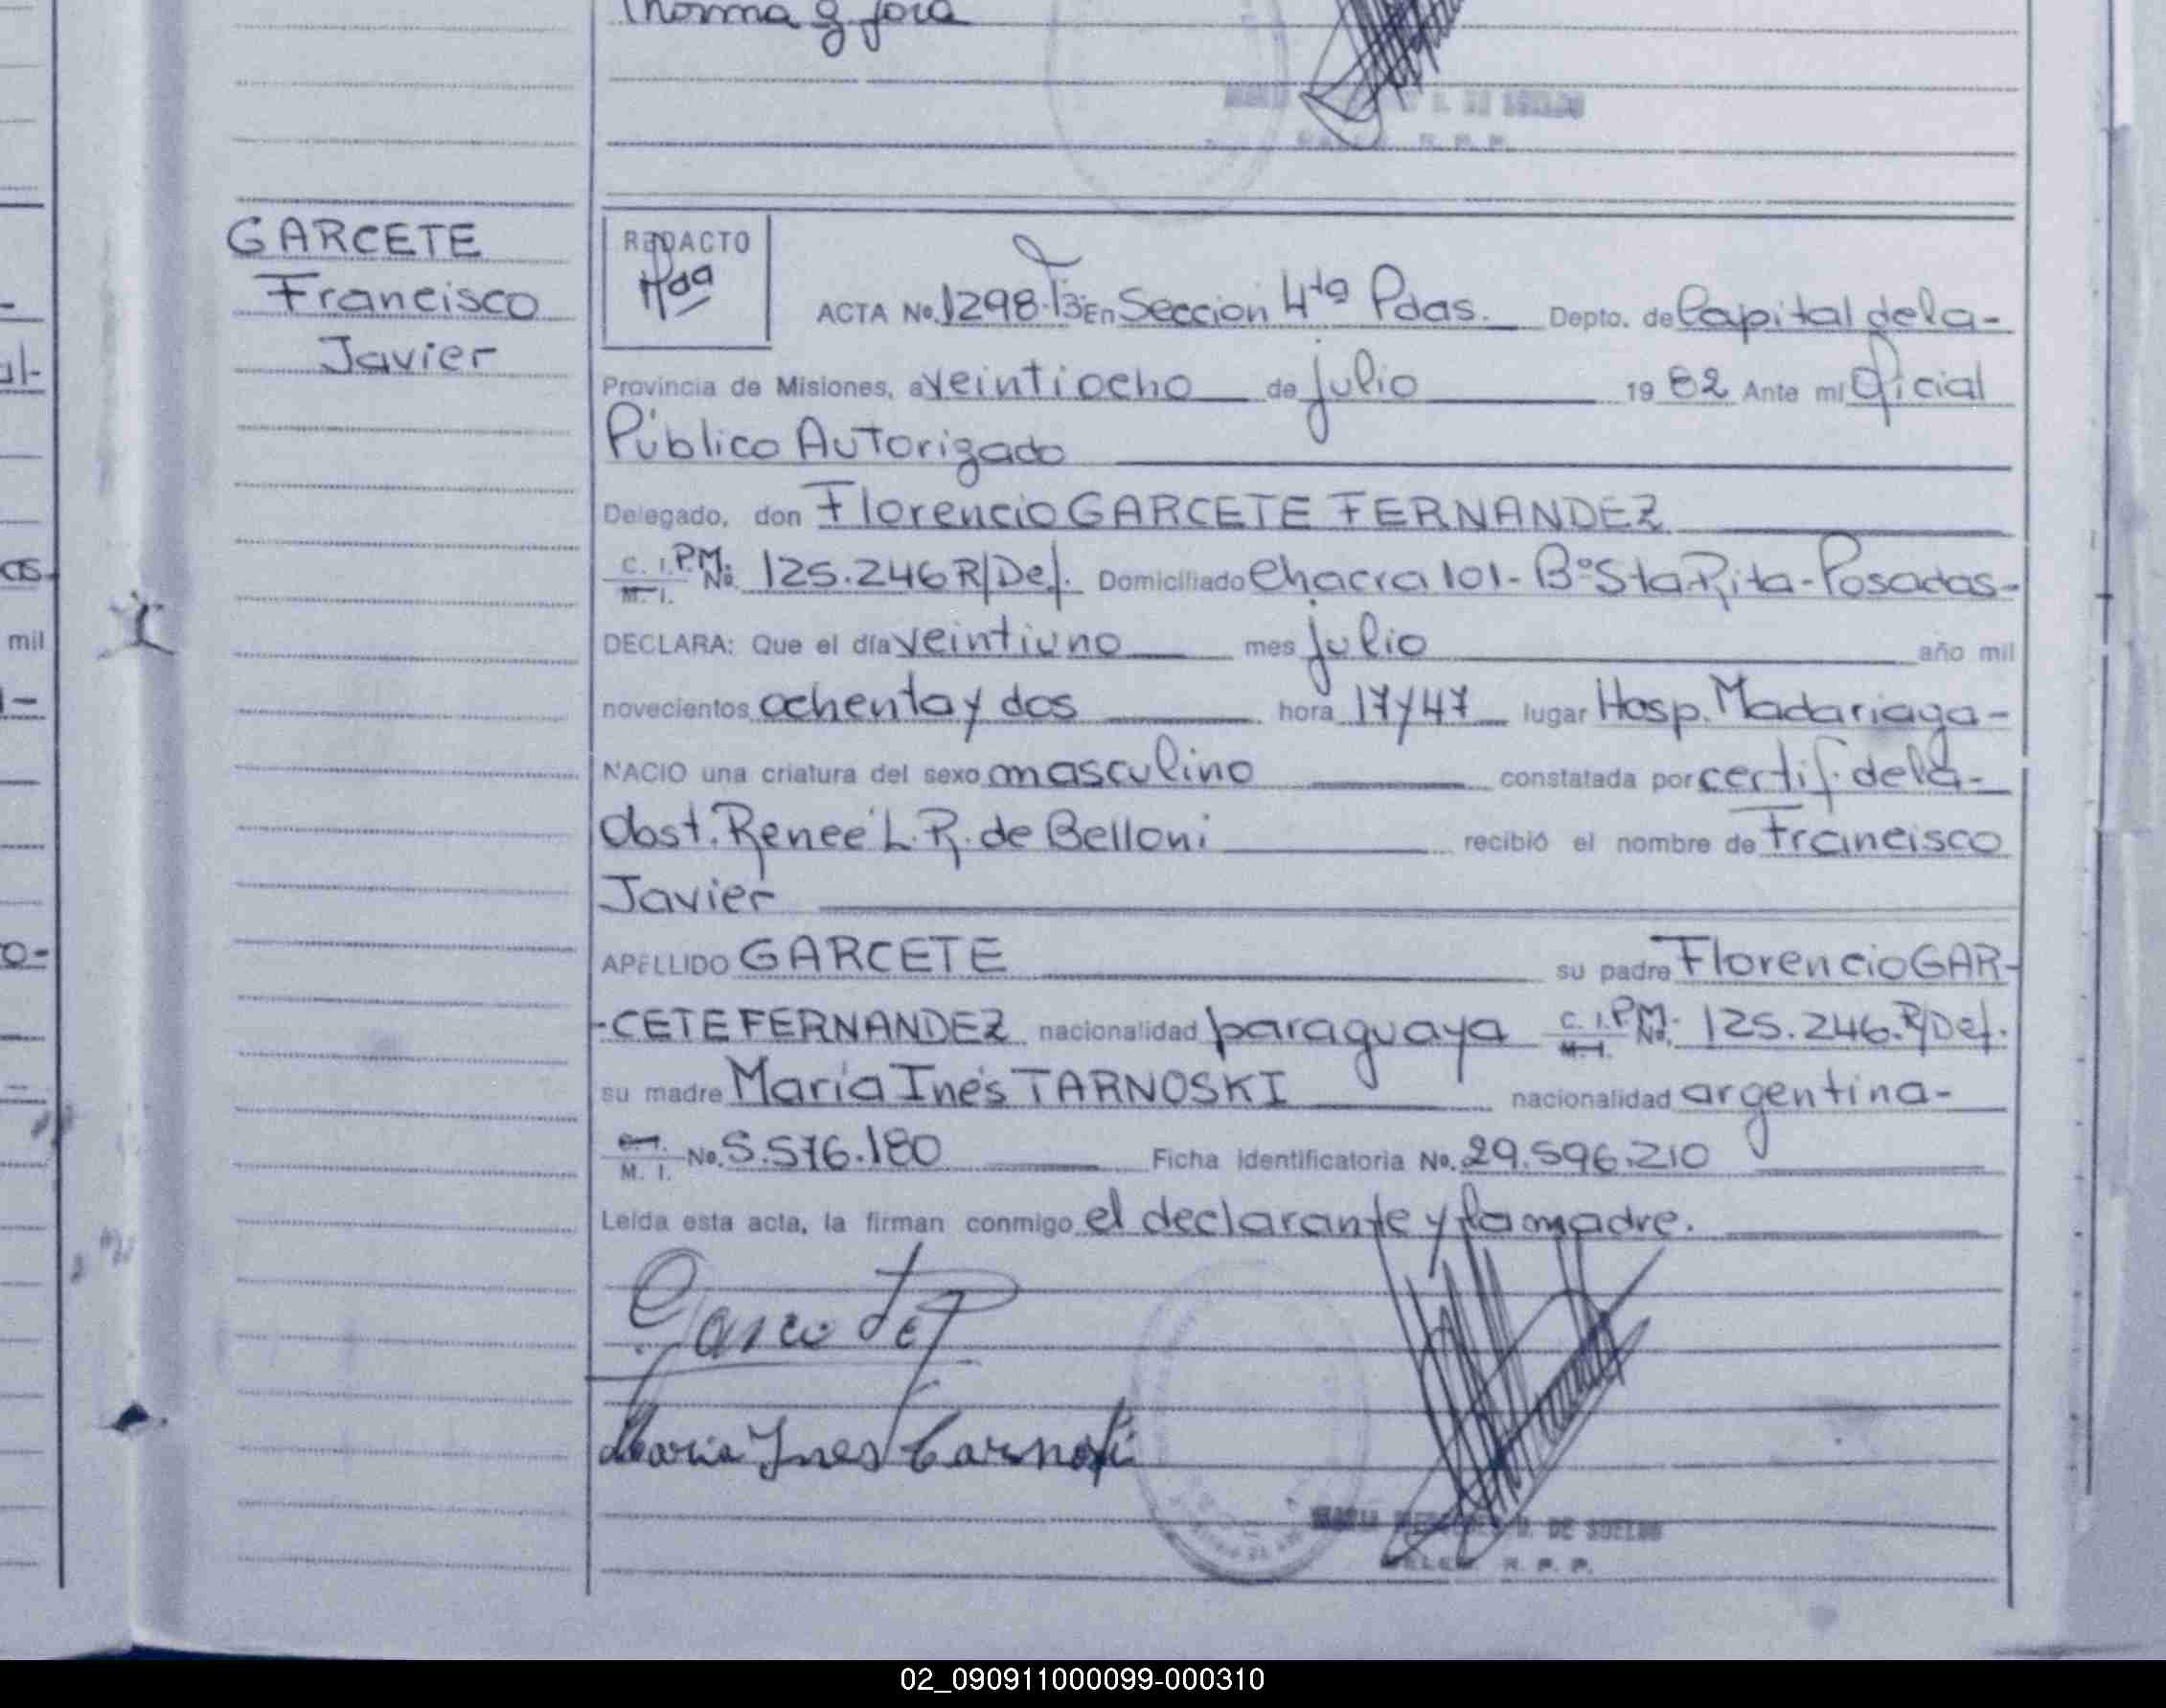 GARCETE
Francisco
Javier
REDACTO
ACTA No. 1298-T3 En Sección 4ta Pdas. Depto. de Capital de la-
Provincia de Misiones, a veintiocho de julio 1982 Ante mí Oficial
Público Autorizado
Delegado, don Florencio GARCETE FERNANDEZ
C. I. P.M. M. I. No. 125.246 R/Def. Domiciliado Chacra 101- Bº Sta Rita-Posadas-
DECLARA: Que el día veintiuno mes julio año mil
novecientos ochenta y dos hora 17y47 lugar Hosp. Madariaga-
NACIO una criatura del sexo masculino constatada por certif. de la-
Obst. Renee L. R. de Belloni recibió el nombre de Francisco
Javier
APELLIDO GARCETE su padre Florencio GAR-
-CETE FERNANDEZ nacionalidad paraguaya C. I. P.M. M. I. No. 125.246.R/Def.
su madre María Inés TARNOSKI nacionalidad argentina-
C. I. M. I. No. 5.576.180 Ficha identificatoria No. 29.596.210
Leída esta acta, la firman conmigo el declarante y la madre.
Garcete
Maria Ines Tarnoski
DE SUELDO
R. P. P.
02_090911000099-000310